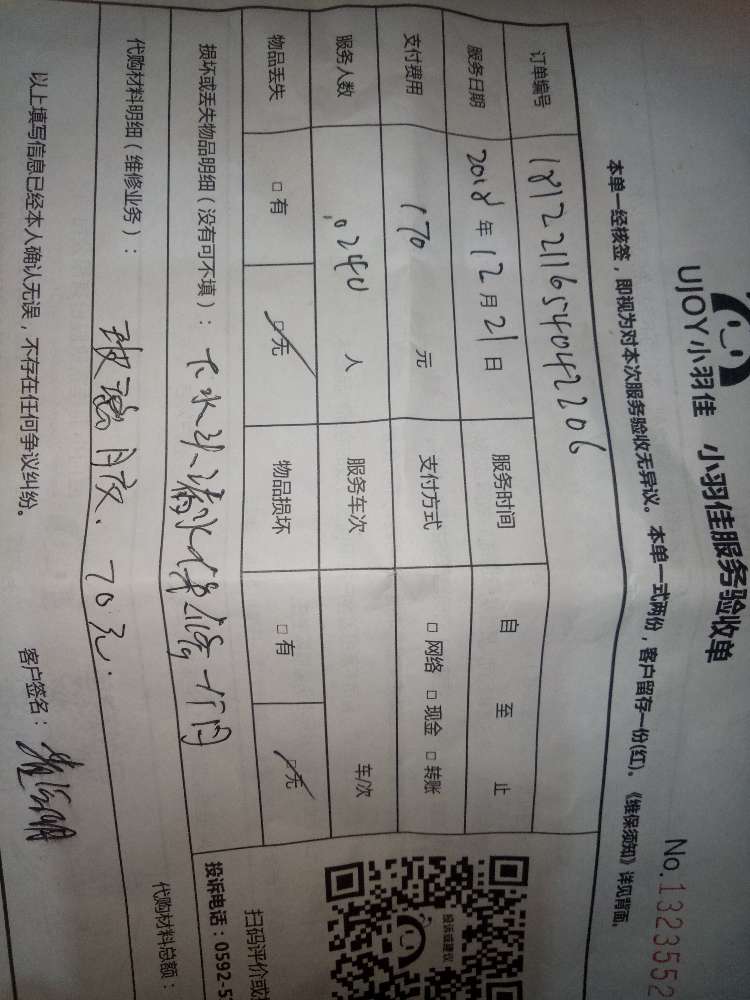 UJOY小羽佳 小羽佳服务验收单
No.1323552
本单一经核签，即视为对本次服务验收无异议。本单一式两份，客户留存一份(红)。《维保须知》详见背面。
订单编号 1812211654042206
服务日期 2018年12月21日 服务时间 自 至 止
支付费用 170 元 支付方式 □网络 □现金 □转账
服务人数 0240 人 服务车次 车/次
物品丢失 □有 □无 物品损坏 □有 □无
损坏或丢失物品明细（没有可不填）： 下水
代购材料明细（维修业务）： 玻璃胶、70元.
代购材料总额：
以上填写信息已经本人确认无误，不存在任何争议纠纷。 客户签名：
投诉或建议
扫码评价或
投诉电话：0592-5